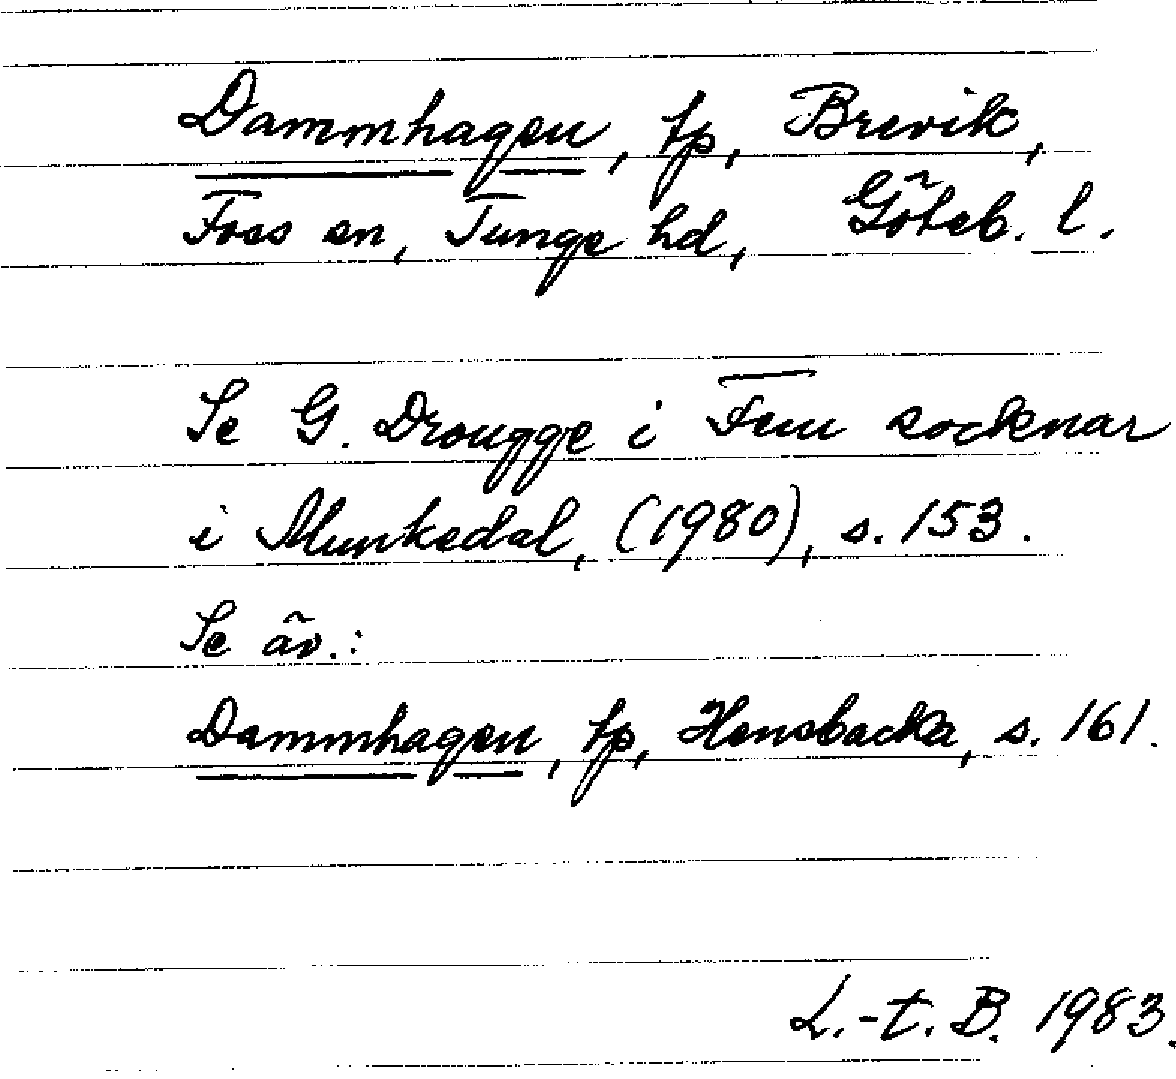 Dammhagen, tp, Brevik,
Foss sn, Tunge hd, Göteb. l.
Se G. Drougge i Fem socknar
i Munkedal, (1980), s. 153.
Se äv.:
Dammhagen, tp, Hensbacka, s. 161.
L.-t. B. 1983.